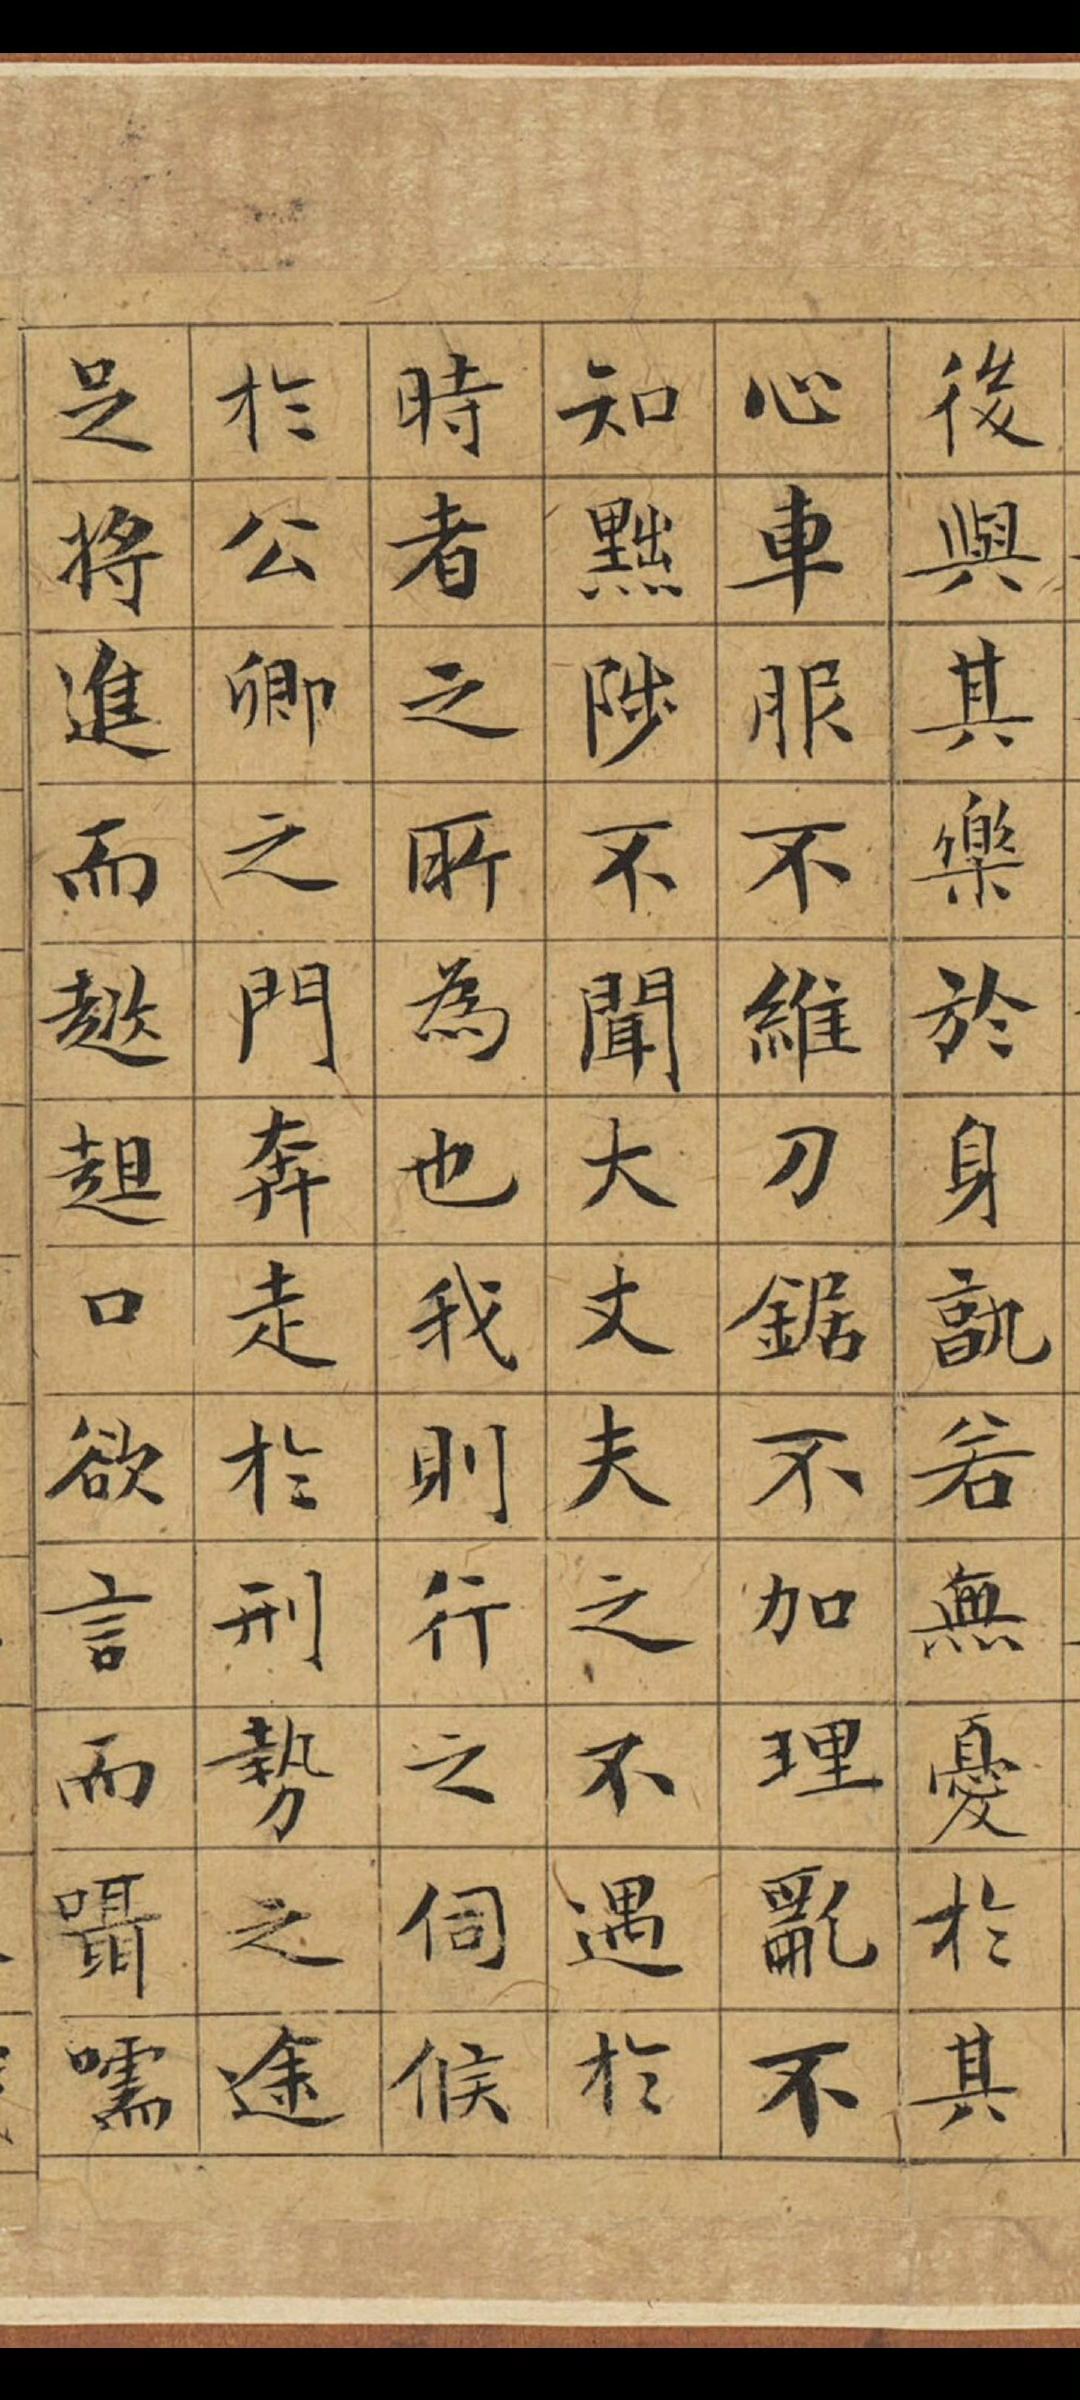 後與其樂於身孰若無憂於其
心車服不維刀鋸不加理亂不
知黜陟不聞大丈夫之不遇於
時者之所為也我則行之伺候
於公卿之門奔走於刑勢之途
足將進而趑趄口欲言而囁嚅